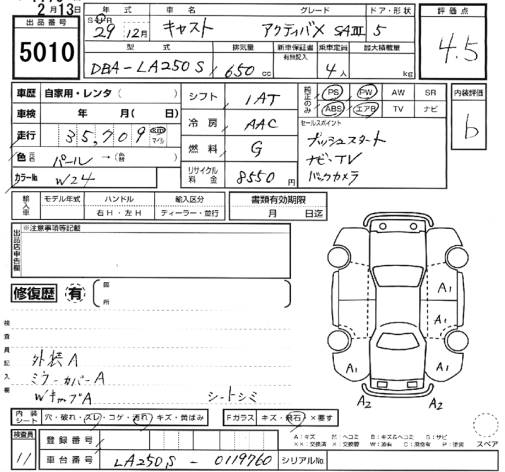 2月13日
出品番号
5010
年式
SHR 29年 12月
車名
キャスト
グレード
アクティバX SAⅢ
ドア・形状
5
評価点
4.5
型式
DBA-LA250S
排気量
650 cc
新車保証書
有無記入
乗車定員
4人
最大積載量
kg
車歴 自家用・レンタ( )
車検 年 月( 日)
走行 35,709 km マイル
色 元色 パール→(替 )
カラーNo W24
シフト IAT
冷房 AAC
燃料 G
リサイクル料金 8550円
純正のみ
PS PW AW SR
ABS エアB TV ナビ
セールスポイント
プッシュスタート
ナビ・TV
バックカメラ
内装評価
b
輸入車
モデル年式
ハンドル
右H・左H
輸入区分
ディーラー・並行
書類有効期限
月 日迄
出品店申告欄
※注意事項等記載
修復歴 有
箇所
検査員記入欄
外装A
ミラーカバーA
シートシミ
A1 A1
A1 A1
A2 A2
内装シート
穴・破れ・スレ・コゲ・汚れ・キズ・黄ばみ
Fガラス キズ・飛石・×要す
検査員
11
登録番号
車台番号 LA250S-0119760
シリアルNo.
A:キズ
スペア